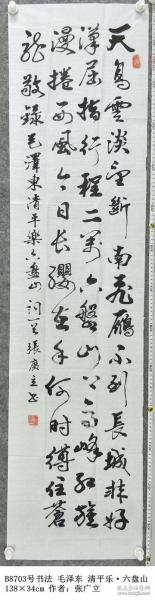 天高雲淡望斷南飛鴈不到長城非好
漢屈指行程二萬六盤山上高峰紅旗
漫捲西風今日長纓在手何時縛住蒼
龍敬錄毛澤東清平樂六盤山詞一首張廣立書
B8703号书法 毛泽东 清平乐·六盘山
138×34cm 作者：张广立